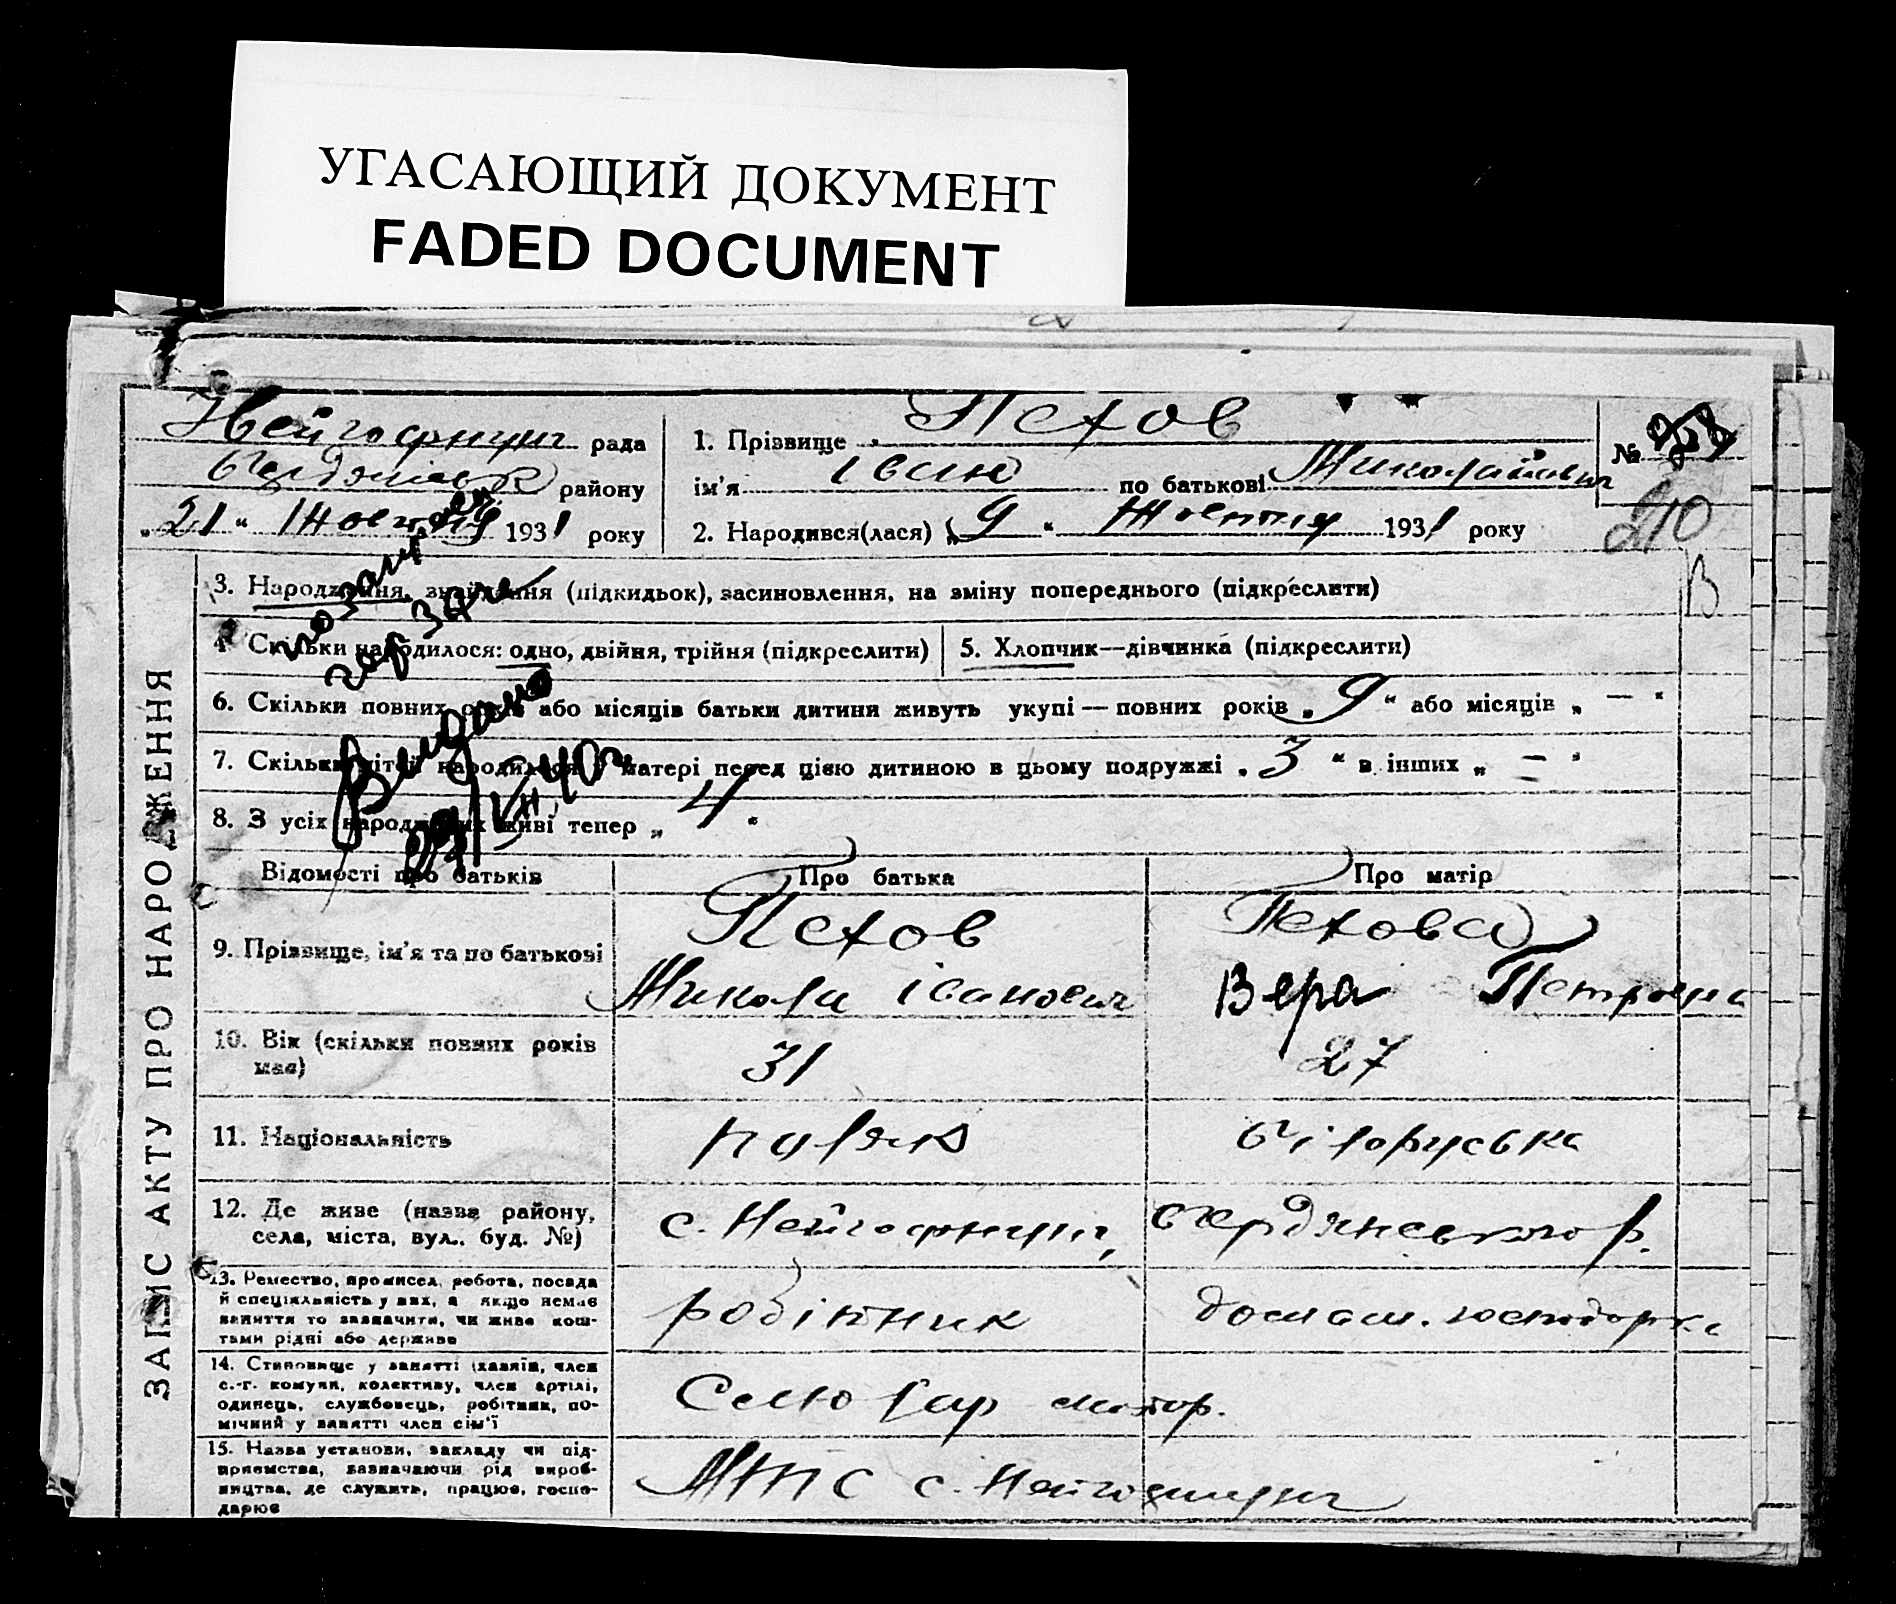 УГАСАЮЩИЙ ДОКУМЕНТ
FADED DOCUMENT
рада
району
„21" Жовтня 1931 року
1. Прізвище Пехов
ім'я Іван по батькові Миколайович
2. Народився(лася) „9" Жовтня 1931 року
№
210
В
ЗАПИС АКТУ ПРО НАРОДЖЕННЯ
3. Народження, знайдення (підкидьок), засиновлення, на зміну попереднього (підкреслити)
4. Скільки народилося: одно, двійня, трійня (підкреслити)
5. Хлопчик—дівчинка (підкреслити)
6. Скільки повних років або місяців батьки дитини живуть укупі — повних років „9" або місяців „—"
7. Скільки дітей народилося у матері перед цією дитиною в цьому подружжі „3" в інших „—"
8. З усіх народжених живі тепер „4"
Видано
Відомості про батьків
Про батька
Про матір
9. Прізвище, ім'я та по батькові
Пехов
Микола Іванович
Пехова
Вера Петровна
10. Вік (скільки повних років має)
31
27
11. Національність
поляк
білоруська
12. Де живе (назва району, села, міста, вул., буд. №)
с. Бердянського р.
13. Ремество, промисел, робота, посада й спеціяльність у них, а якщо немає заняття то зазначити, чи живе коштами рідні або держави
робітник
домаш. господарка
14. Становище у занятті (хазяїн, член с.-г. комуни, колективу, член артілі, одинець, службовець, робітник, помічний у занятті член сім'ї
15. Назва установи, закладу чи підприємства, зазначаючи рід виробництва, де служить, працює, господарює
МТС с.